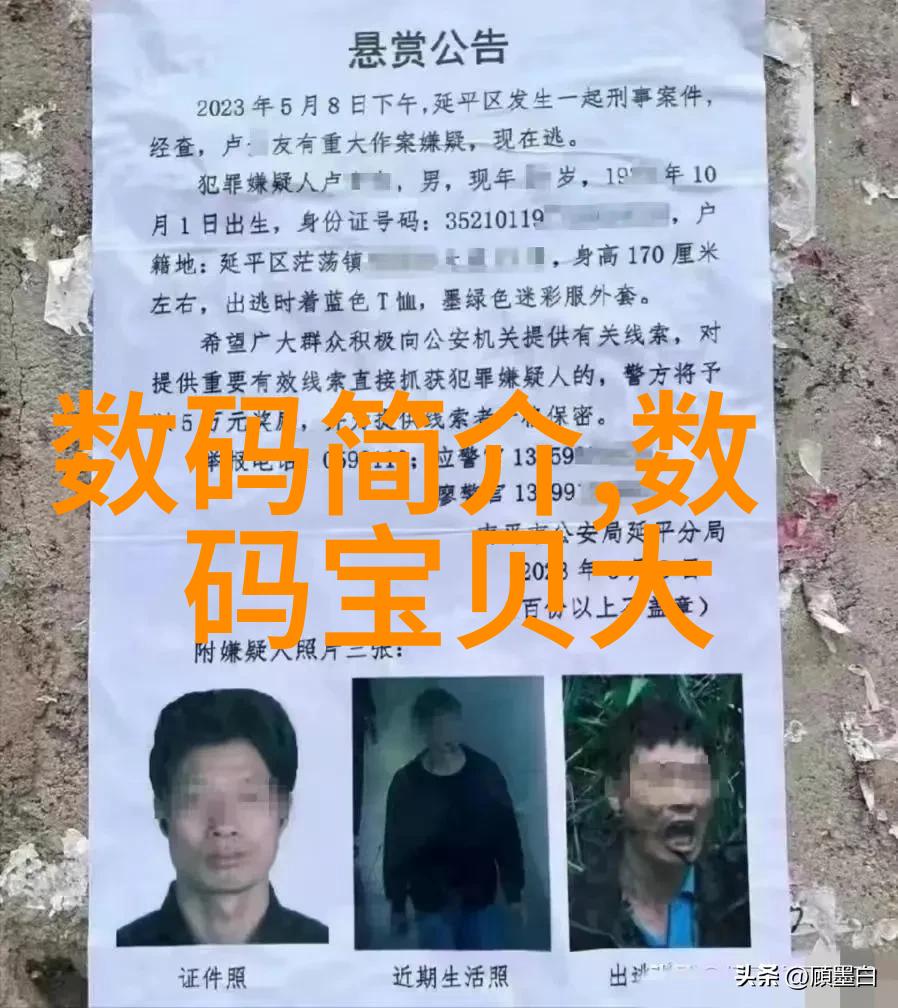 悬赏公告
2023年5月8日下午,延平区发生一起刑事案件,
经查,卢 友有重大作案嫌疑,现在逃。
犯罪嫌疑人卢 ,男,现年 岁,19 年10
月1日出生,身份证号码:35210119 ,户
籍地:延平区茫荡镇 ,身高170厘米
左右,出逃时着蓝色T恤,墨绿色迷彩服外套。
希望广大群众积极向公安机关提供有关线索,对
提供重要有效线索直接抓获犯罪嫌疑人的,警方将予
5万元奖 保密。
数码简介,数
码宝贝大
举报电话 应警官13
廖警官13
公安局延平分局
百份以上 盖章)
附嫌疑人照片三张:
证件照
近期生活照
出逃
头条 @顾墨白